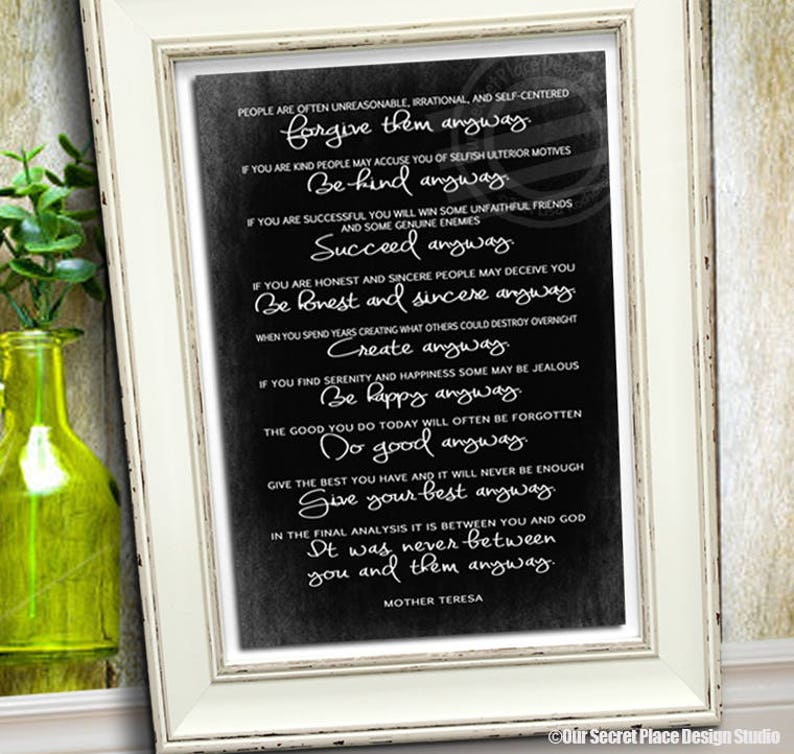 PEOPLE ARE OFTEN UNREASONABLE, IRRATIONAL, AND SELF-CENTERED
forgive them anyway.
IF YOU ARE KIND PEOPLE MAY ACCUSE YOU OF SELFISH ULTERIOR MOTIVES
Be kind anyway.
IF YOU ARE SUCCESSFUL YOU WILL WIN SOME UNFAITHFUL FRIENDS
AND SOME GENUINE ENEMIES
Succeed anyway.
IF YOU ARE HONEST AND SINCERE PEOPLE MAY DECEIVE YOU
Be honest and sincere anyway.
WHEN YOU SPEND YEARS CREATING WHAT OTHERS COULD DESTROY OVERNIGHT
Create anyway.
IF YOU FIND SERENITY AND HAPPINESS SOME MAY BE JEALOUS
Be happy anyway.
THE GOOD YOU DO TODAY WILL OFTEN BE FORGOTTEN
Do good anyway.
GIVE THE BEST YOU HAVE AND IT WILL NEVER BE ENOUGH
Give your best anyway.
IN THE FINAL ANALYSIS IT IS BETWEEN YOU AND GOD
It was never between
you and them anyway.
MOTHER TERESA
©Our Secret Place Design Studio